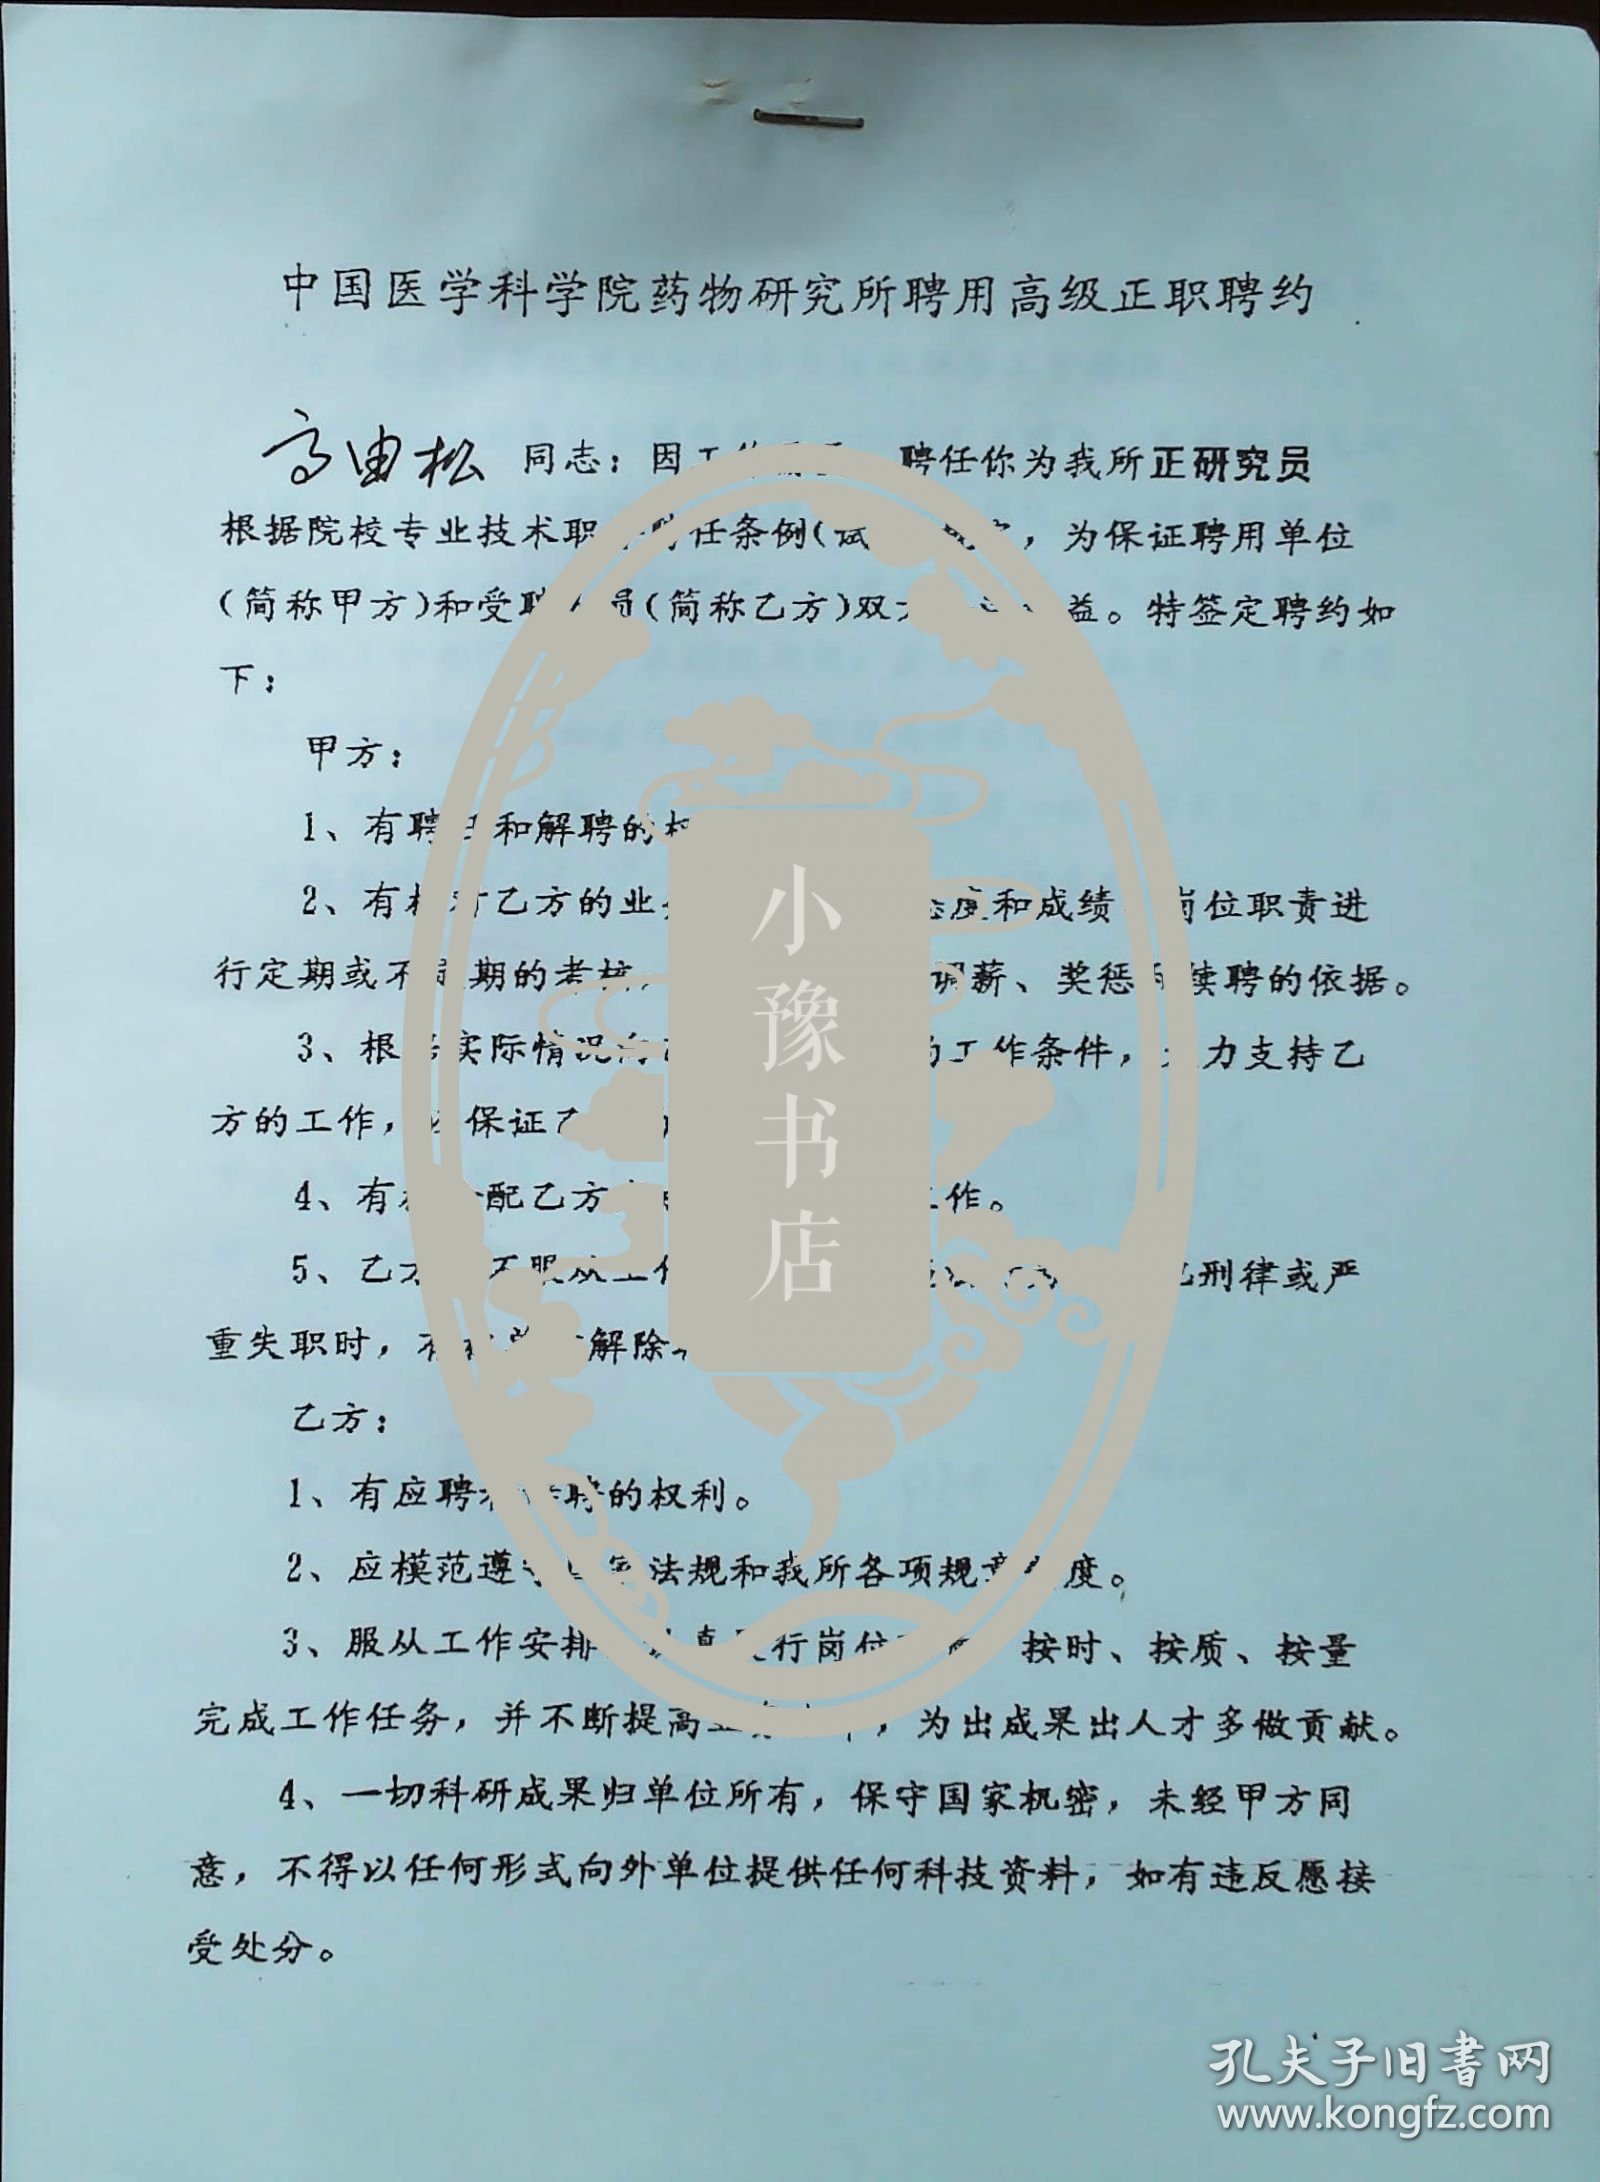 中国医学科学院药物研究所聘用高级正职聘约
高由松 同志：因工作需要 聘任你为我所正研究员
根据院校专业技术职 聘任条例(试 规定，为保证聘用单位
(简称甲方)和受聘人员(简称乙方)双方 益。特签定聘约如
下：
甲方：
1、有聘任和解聘的权
2、有权对乙方的业务 态度和成绩 岗位职责进
行定期或不定期的考核， 调薪、奖惩和续聘的依据。
3、根据实际情况向乙 的工作条件，大力支持乙
方的工作， 保证乙
4、有权分配乙方 工作。
5、乙方 不服从工作 犯刑律或严
重失职时，有权 解除
乙方：
1、有应聘和辞聘的权利。
2、应模范遵守国家法规和我所各项规章制度。
3、服从工作安排 认真履行岗位 按时、按质、按量
完成工作任务，并不断提高业务水平，为出成果出人才多做贡献。
4、一切科研成果归单位所有，保守国家机密，未经甲方同
意，不得以任何形式向外单位提供任何科技资料，如有违反愿接
受处分。
小豫书店
孔夫子旧书网
www.kongfz.com